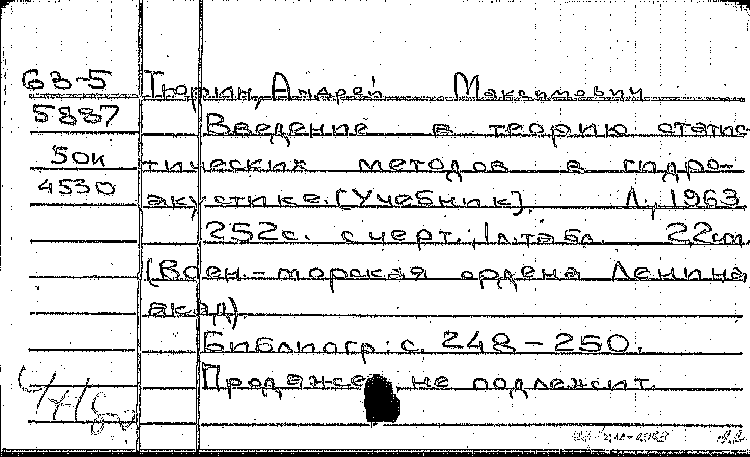 63-5 Тюрин, Андрей Максимович
5887 Введение в теорию статис-
50и тических методов в гидро-
4530 акустике. [Учебник]. Л., 1963
252с. с черт.; 1л. табл. 22cm.
(Воен.-морская ордена Ленина
акад).
Библиогр: с. 248-250.
Продаже не подлежит.